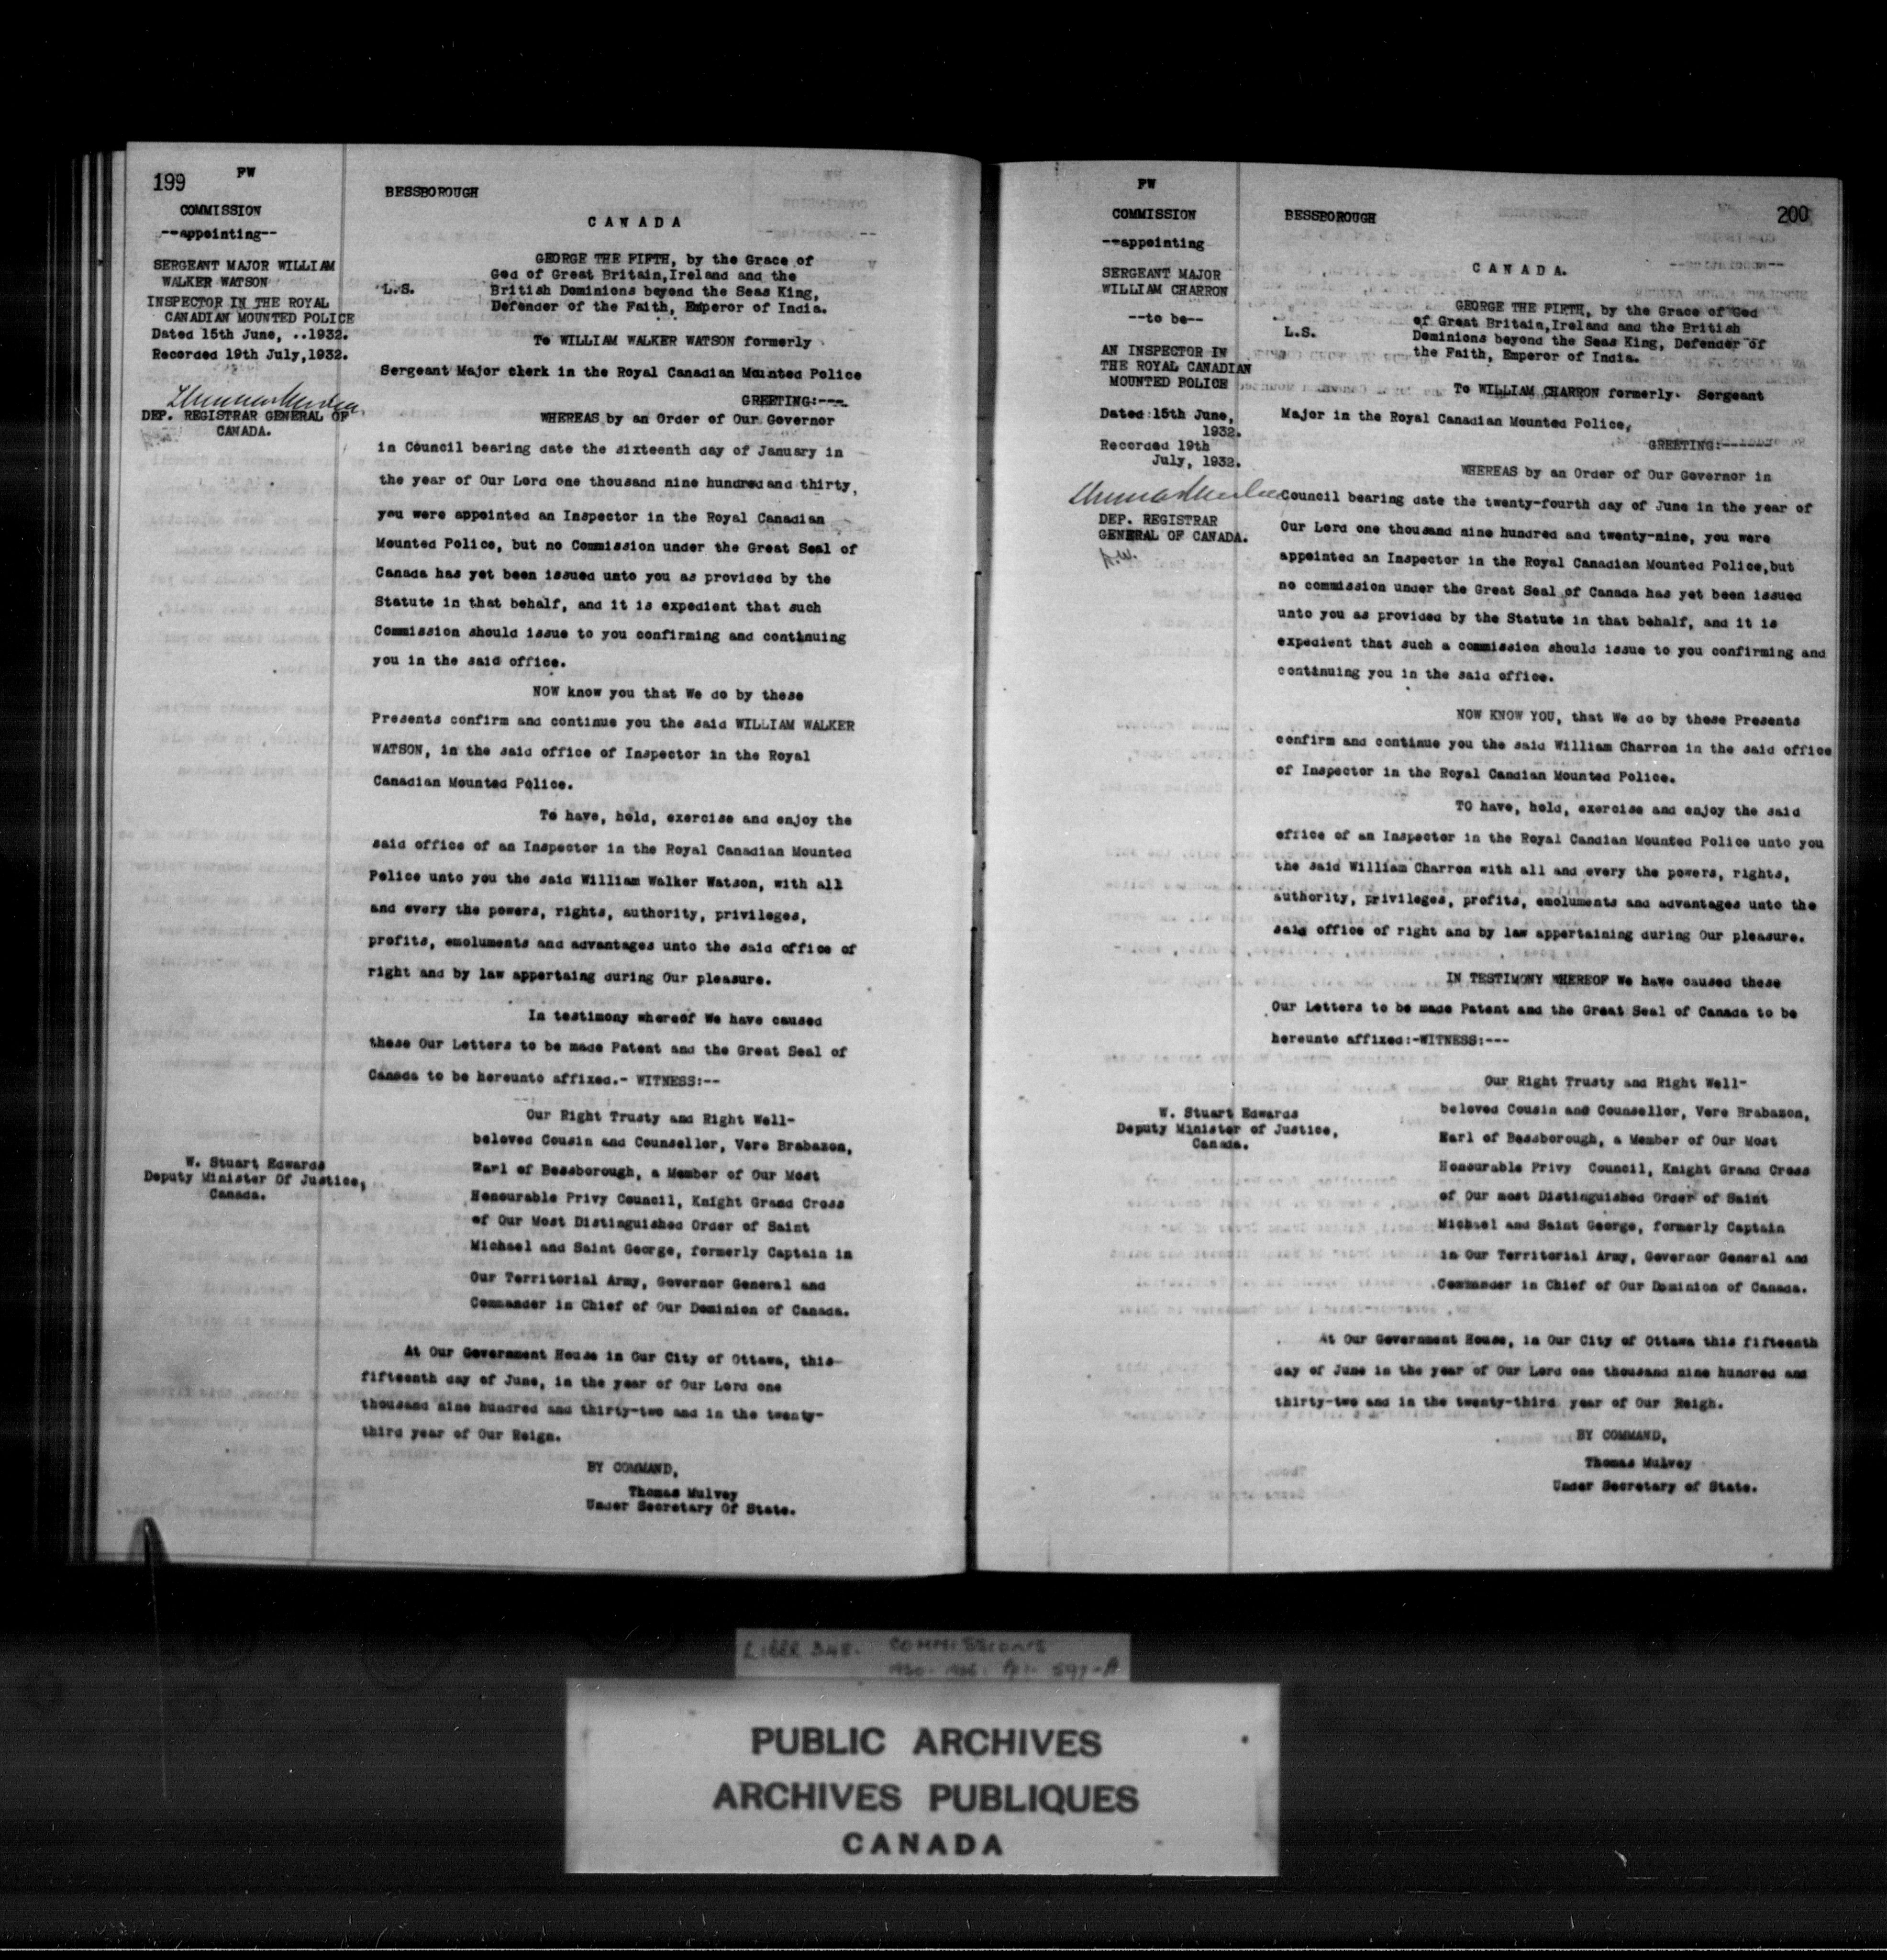 199
PW
COMMISSION
--appointing--
SERGEANT MAJOR WILLIAM
WALKER WATSON
INSPECTOR IN THE ROYAL
CANADIAN MOUNTED POLICE
Dated 15th June, ..1932.
Recorded 19th July,1932.
DEP. REGISTRAR GENERAL OF
CANADA.
W. Stuart Edwards
Deputy Minister Of Justice,
Canada.
BESSBOROUGH
CANADA
GEORGE THE FIFTH, by the Grace of
God of Great Britain,Ireland and the
L.S. British Dominions beyond the Seas King,
Defender of the Faith, Emperor of India.
To WILLIAM WALKER WATSON formerly
Sergeant Major clerk in the Royal Canadian Mounted Police
GREETING:---
WHEREAS by an Order of Our Governor
in Council bearing date the sixteenth day of January in
the year of Our Lord one thousand nine hundred and thirty,
you were appointed an Inspector in the Royal Canadian
Mounted Police, but no Commission under the Great Seal of
Canada has yet been issued unto you as provided by the
Statute in that behalf, and it is expedient that such
Commission should issue to you confirming and continuing
you in the said office.
NOW know you that We do by these
Presents confirm and continue you the said WILLIAM WALKER
WATSON, in the said office of Inspector in the Royal
Canadian Mounted Police.
To have, hold, exercise and enjoy the
said office of an Inspector in the Royal Canadian Mounted
Police unto you the said William Walker Watson, with all
and every the powers, rights, authority, privileges,
profits, emoluments and advantages unto the said office of
right and by law appertaing during Our pleasure.
In testimony whereof We have caused
these Our Letters to be made Patent and the Great Seal of
Canada to be hereunto affixed.- WITNESS:--
Our Right Trusty and Right Well-
beloved Cousin and Counsellor, Vere Brabazon,
Earl of Bessborough, a Member of Our Most
Honourable Privy Council, Knight Grand Cross
of Our Most Distinguished Order of Saint
Michael and Saint George, formerly Captain in
Our Territorial Army, Governor General and
Commander in Chief of Our Dominion of Canada.
At Our Government House in Our City of Ottawa, this
fifteenth day of June, in the year of Our Lord one
thousand nine hundred and thirty-two and in the twenty-
third year of Our Reign.
BY COMMAND,
Thomas Mulvey
Under Secretary Of State.
PW
COMMISSION
--appointing
SERGEANT MAJOR
WILLIAM CHARRON
--to be--
AN INSPECTOR IN
THE ROYAL CANADIAN
MOUNTED POLICE
Dated 15th June,
1932.
Recorded 19th
July, 1932.
DEP. REGISTRAR
GENERAL OF CANADA.
W. Stuart Edwards
Deputy Minister of Justice,
Canada.
BESSBOROUGH
200
CANADA.
GEORGE THE FIFTH, by the Grace of God
of Great Britain,Ireland and the British
L.S. Dominions beyond the Seas King, Defender of
the Faith, Emperor of India.
To WILLIAM CHARRON formerly. Sergeant
Major in the Royal Canadian Mounted Police,
GREETING:------
WHEREAS by an Order of Our Governor in
Council bearing date the twenty-fourth day of June in the year of
Our Lord one thousand nine hundred and twenty-nine, you were
appointed an Inspector in the Royal Canadian Mounted Police,but
no commission under the Great Seal of Canada has yet been issued
unto you as provided by the Statute in that behalf, and it is
expedient that such a commission should issue to you confirming and
continuing you in the said office.
NOW KNOW YOU, that We do by these Presents
confirm and continue you the said William Charron in the said office
of Inspector in the Royal Candian Mounted Police.
TO have, hold, exercise and enjoy the said
office of an Inspector in the Royal Candian Mounted Police unto you
the said William Charron with all and every the powers, rights,
authority, privileges, profits, emoluments and advantages unto the
said office of right and by law appertaining during Our pleasure.
IN TESTIMONY WHEREOF We have caused these
Our Letters to be made Patent and the Great Seal of Canada to be
hereunto affixed:-WITNESS:---
Our Right Trusty and Right Well-
beloved Cousin and Counsellor, Vere Brabazon,
Earl of Bessborough, a Member of Our Most
Honourable Privy Council, Knight Grand Cross
of Our most Distinguished Order of Saint
Michael and Saint George, formerly Captain
in Our Territorial Army, Governor General and
Commander in Chief of Our Dominion of Canada.
At Our Government House, in Our City of Ottawa this fifteenth
day of June in the year of Our Lord one thousand nine hundred and
thirty-two and in the twenty-third year of Our Reigh.
BY COMMAND,
Thomas Mulvey
Under Secretary of State.
LIBER 348. COMMISSIONS
PUBLIC ARCHIVES
ARCHIVES PUBLIQUES
CANADA